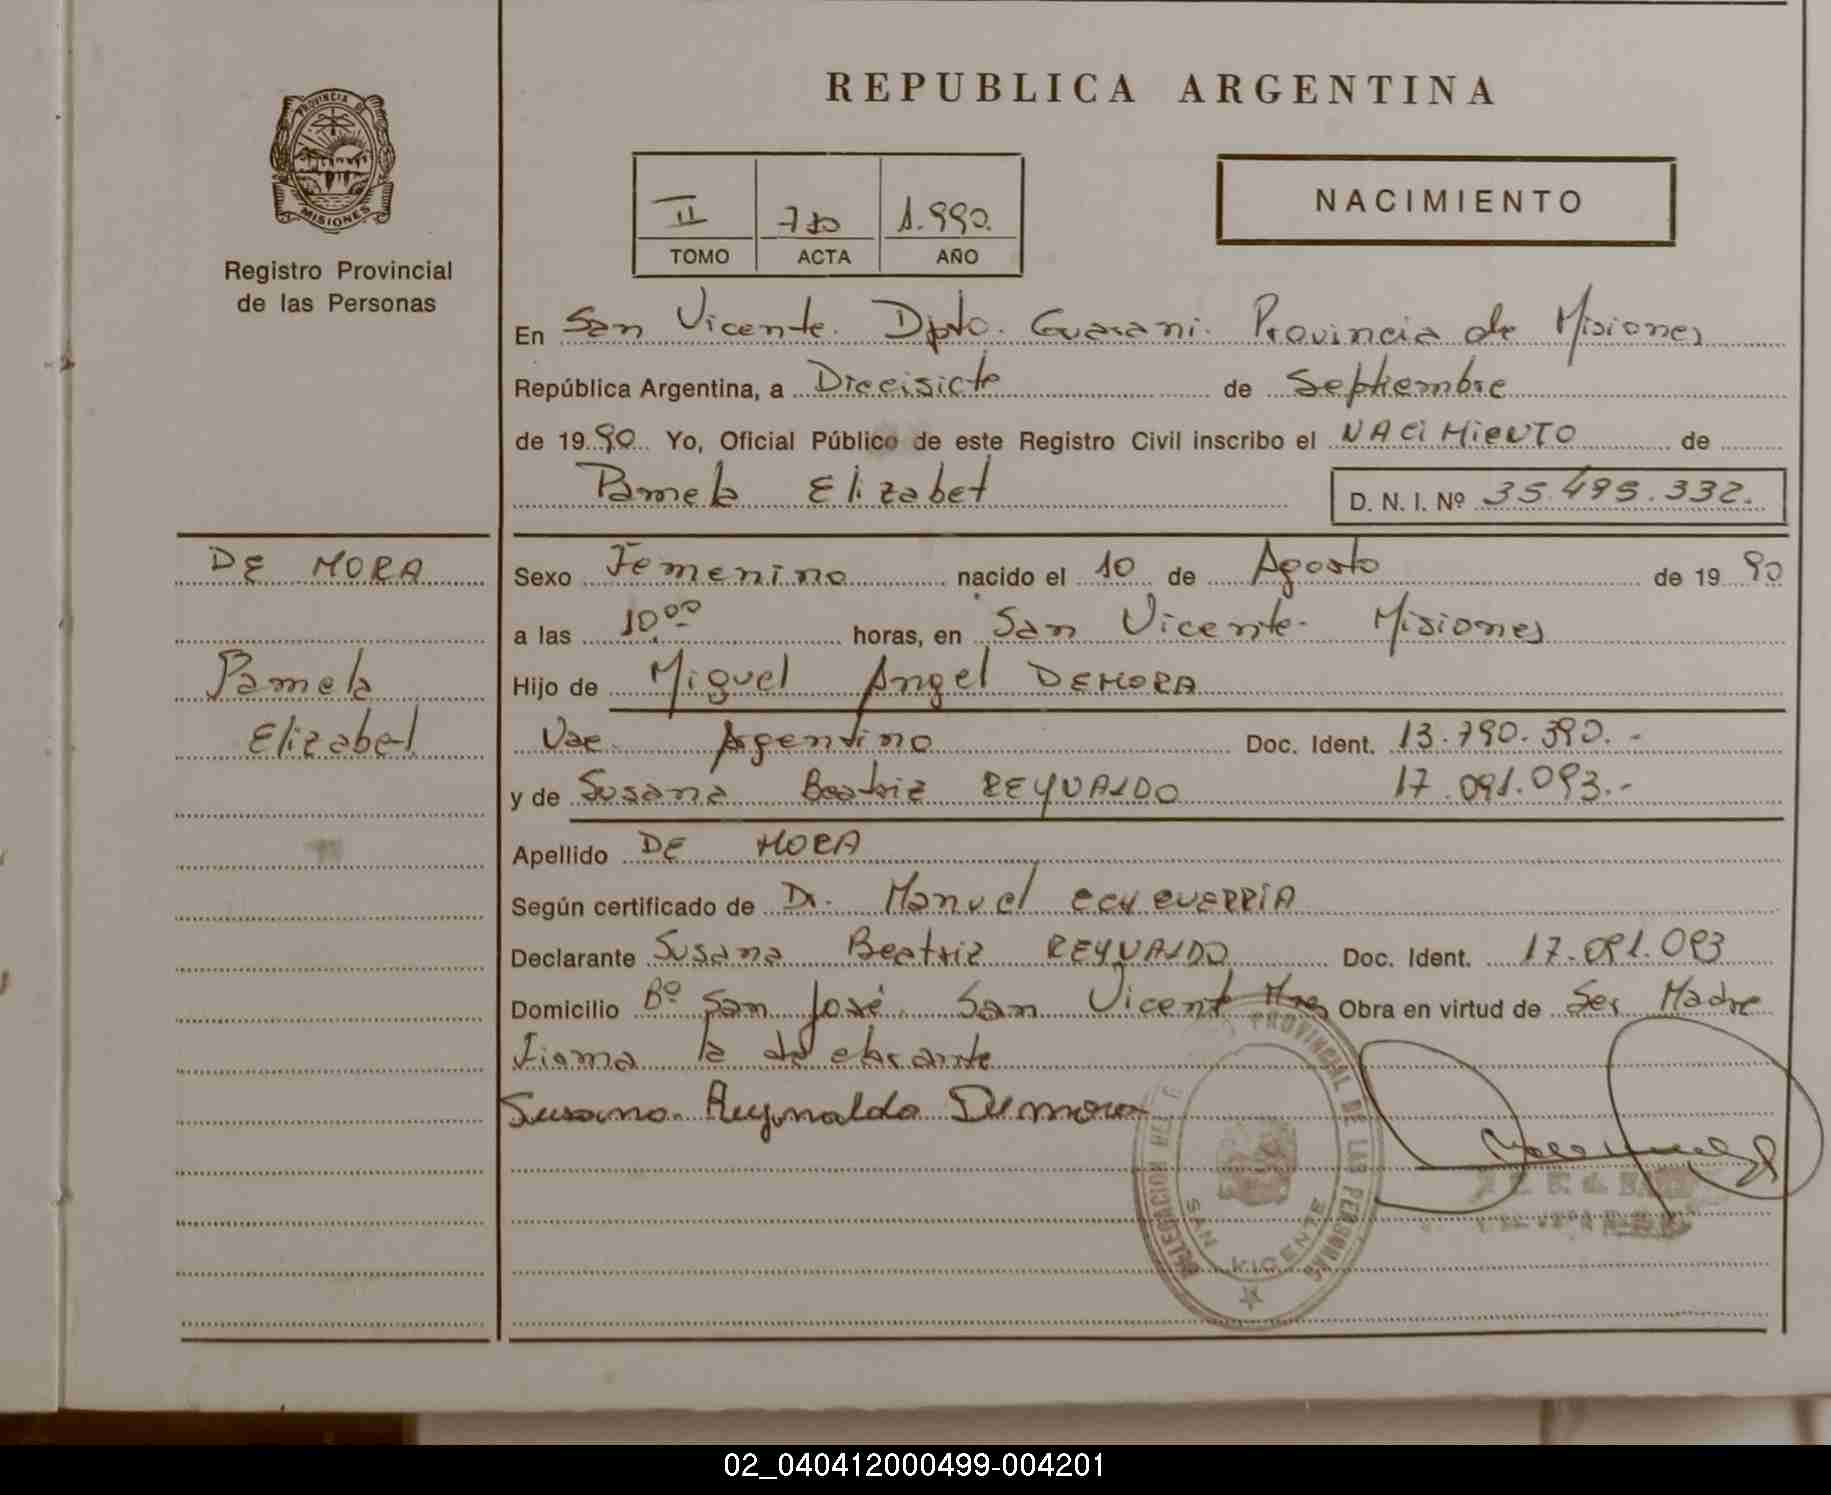 REPUBLICA ARGENTINA
PROVINCIA DE
MISIONES
Registro Provincial
de las Personas
II 1.990.
TOMO ACTA AÑO
NACIMIENTO
En San Vicente. Dpto. Guarani. Provincia de Misiones
República Argentina, a Diecisiete de Septiembre
de 1990 Yo, Oficial Público de este Registro Civil inscribo el NACIMIENTO de
Pamela Elizabet D. N. I. Nº 35.495.332.
DE MORA
Pamela
Elizabet
Sexo Femenino nacido el 10 de Agosto de 1990
a las 10,00 horas, en San Vicente- Misiones
Hijo de Miguel Angel DEMORA
Nac. Argentino Doc. Ident. 13.790.390.-
y de Susana Beatriz REYNALDO 17.091.093.-
Apellido DE MORA
Según certificado de Dr. Manuel ECHEVERRÍA
Declarante Susana Beatriz REYNALDO Doc. Ident. 17.091.093
Domicilio Bº San José. San Vicente Mnes Obra en virtud de Ser Madre
Firma la declarante
Susana Reynaldo Demora
DELEGACION PROVINCIAL DE LAS PERSONAS
SAN VICENTE
02_040412000499-004201